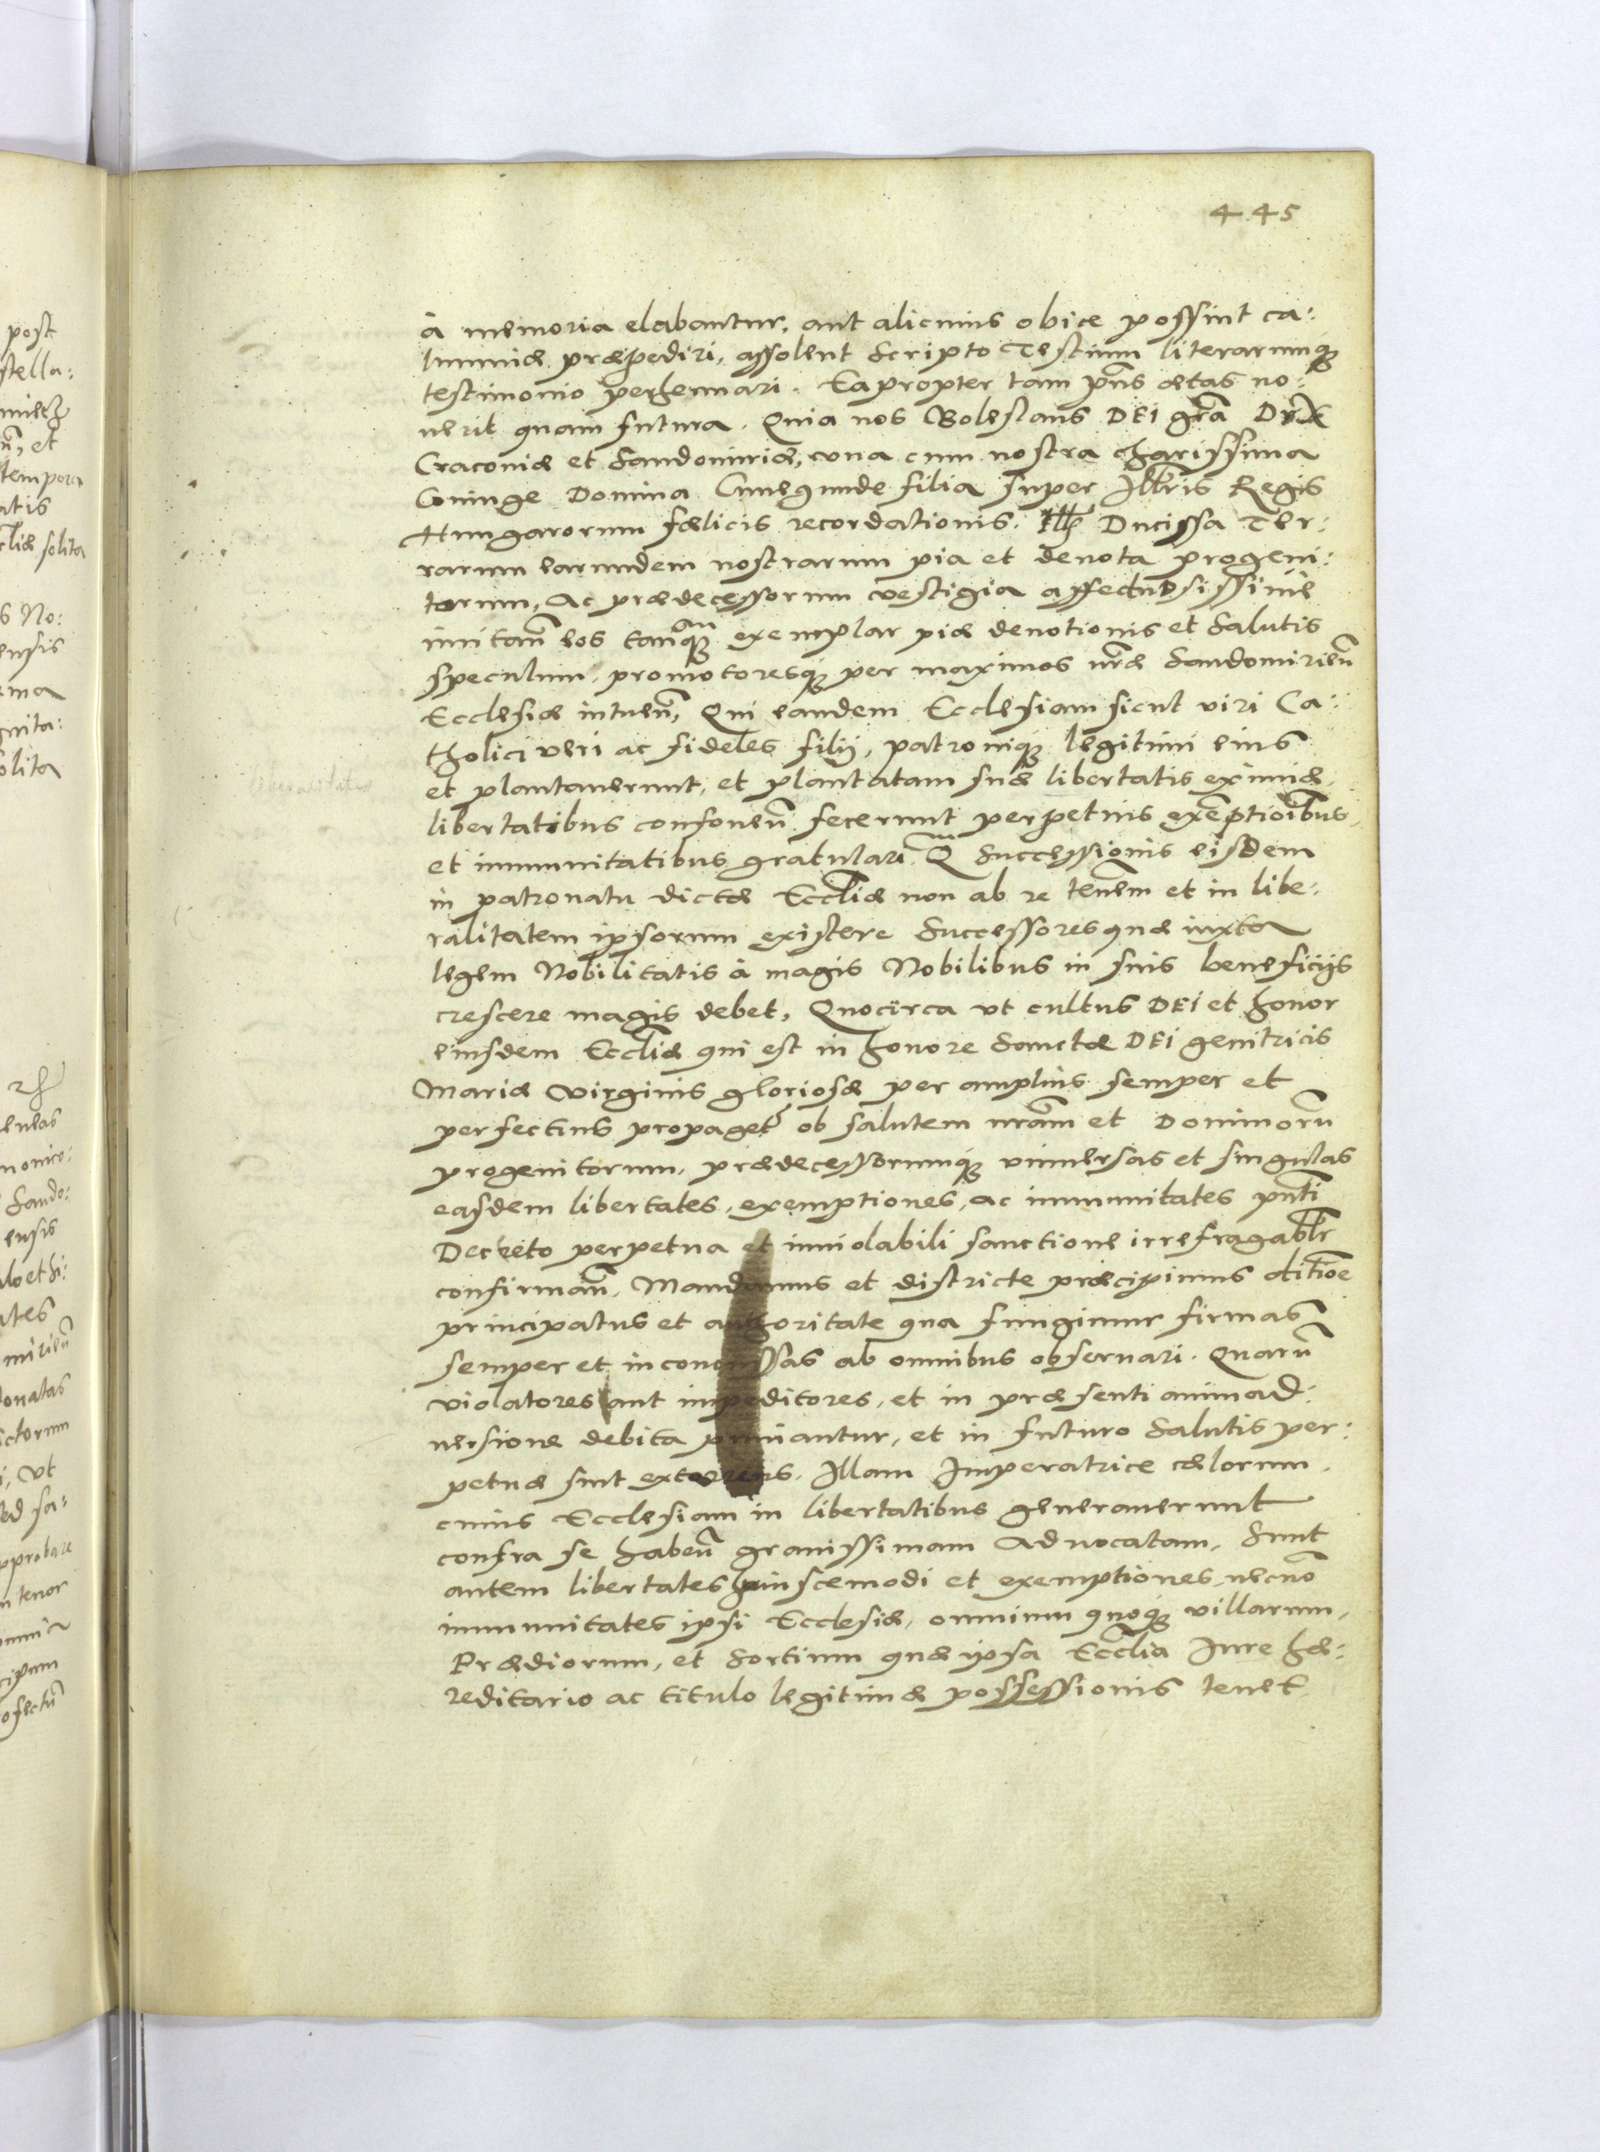 445
à memoria elabantur, aut alicuius obice possint ca:
lumniæ præpediri, assolent Scripto Testium literarumq₃
testimonio perhennari. Eapropter tam pn̄s ætas no:
uerit quam futura. Quia nos Boleslaus DEI gr̄a Dux
Cracoviæ et Sandomiriæ, vna cum nostra charissima
Coniuge Domina Cunegunde filia super Ill̄ris Regis
Hungarorum fælicis recordationis. Ducissa Ter:
rarum earundem nostrarum pia et deuota progeni:
torum, Ac prædecessorum vestigia affectuosissime
imitan̄ eos tanq₃ exemplar piæ deuotionis et Salutis
speculum, promotoresq₃ per maximos nr̄æ Sandomirien̄
Ecclesiæ intuen̄, Qui eandem Ecclesiam sicut viri Ca:
tholici ueri ac fideles filij, patroniq₃ legitimi eius
et plantauerunt, et plantatam suæ libertatis eximiæ
libertatibus confouen̄ fecerunt perpetuis exēptioībus,
et immunitatibus gratulari. Q Successionis eisdem
in patronatu dictæ Eccl̄iæ non ab re tenem̄ et in libe:
ralitatem ipsorum existere Successores quæ iuxta
legem Nobilitatis à magis Nobilibus in suis beneficijs
crescere magis debet, Quocirca vt cultus DEI et honor
eiusdem Eccl̄iæ qui est in honore Sanctæ DEI genitricis
Mariæ Virginis gloriosæ per amplius semper et
perfectius propaget̄ ob salutem nr̄am et Dominorū
progenitorum, prædecessorumq₃ vniuersas et singulas
easdem libertates, exemptiones, ac immunitates pn̄ti
Decreto perpetua et inuiolabili sanctione irrefragabl̄r
confirman̄. Mandamus et districte præcipimus ditiōe
principatus et authoritate qua fungimur firmas
semper et inconcussas ab omnibus obseruari. Quarū
violatores aut impeditores, et in præsenti animad:
uersione debita puniantur, et in futuro Salutis per:
petuæ sint extorres. Illam Imperatrice cælorum,
cuius Ecclesiam in libertatibus generauerunt
contra se haben̄ grauissimam Aduocatam. Sunt
autem libertates huiuscemodi et exemptiones, necnō
immunitates ipsi Ecclesiæ, omnium quoq₃ villarum,
Prædiorum, et Sortium quæ ipsa Eccl̄ia Iure hæ:
reditario ac titulo legitimæ possessionis tenet